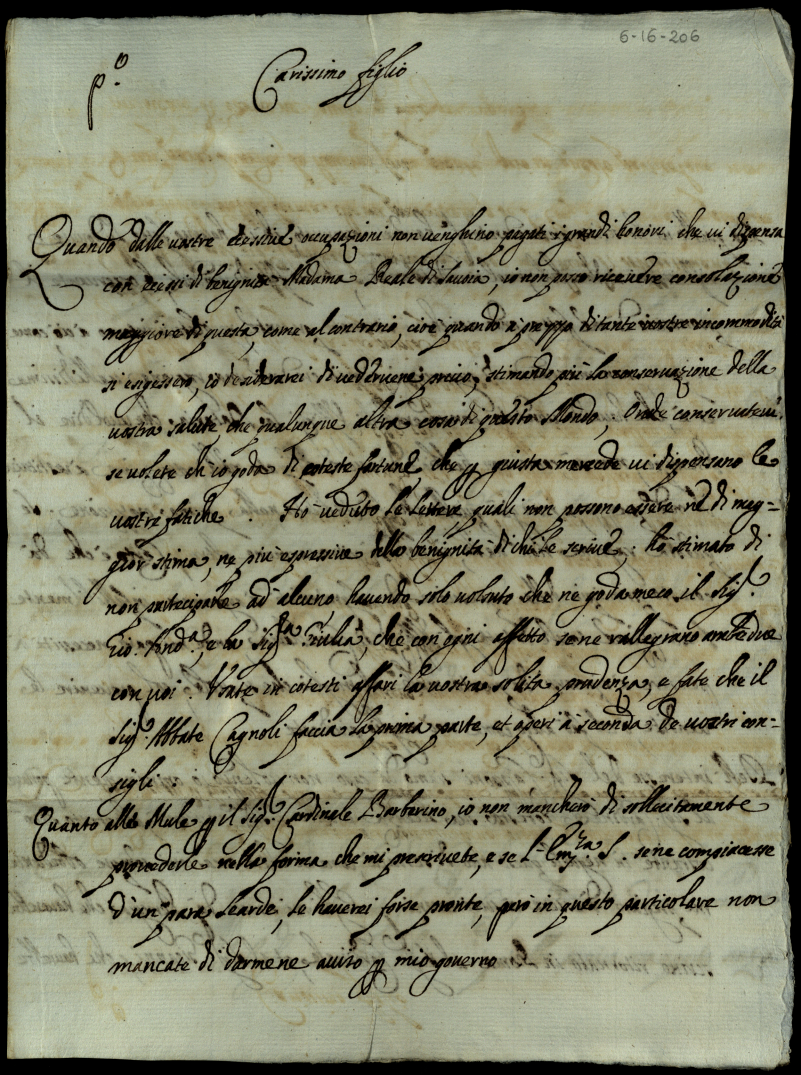 6-16-206
p.o
Carissimo figlio
Quando dalle vostre eccessive occupazioni non venghino pagati i grandi honori che vi dispensa
con eccessi di benignità Madama Reale di Savoia, io non posso ricevere consolazione
maggiore di questa, come al contrario, cioè quando a prezzo di tante vostre incommodità
si esigessero, io desiderarei di vedervene privo, stimando più la conservazione della
vostra salute, che qualunque altra cosa di questo Mondo; Onde conservatevi,
se volete ch'io goda di coteste fortune, che p giusta mercede vi dispensano le
vostre fatiche. Hò veduto le lettere, quali non possono essere nè di mag=
gior stima, ne più espressive della benignità di chi le scrive; hò stimato di
non participarle ad alcuno havendo solo voluto che ne goda meco il Sig.r
Gio: Andr.a, e la Sig.ra Giulia, che con ogni affetto se ne rallegrano ambedue
con voi. Usate in cotesti affari la vostra solita prudenza, e fate che il
Sig.r Abbate Cagnoli faccia la prima parte, et operi a seconda de vostri con=
sigli.
Quanto alle Mule p il Sig.r Cardinale Barberino, io non mancherò di sollecitamente
provederle nella forma che mi prescrivete, e se l'Em.za S. se ne compiacesse
d'un para Leardi, le haverei forse pronte, però in questo particolare non
mancate di darmene aviso p mio governo